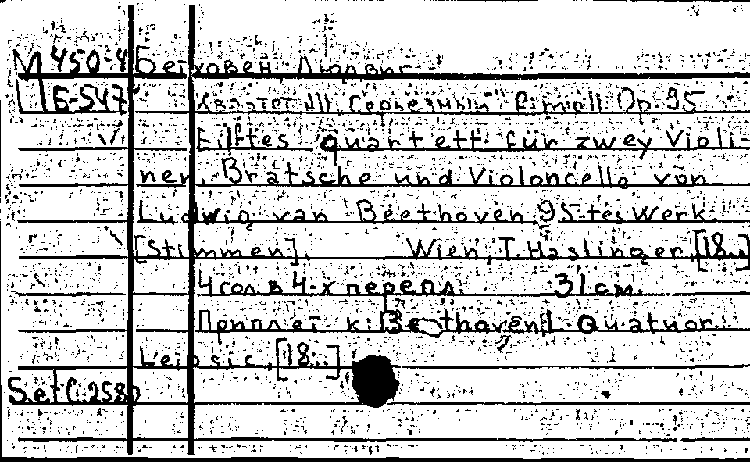 М 450-4 Бетховен, Людвиг
Б-547 Квартет №11 "Серьезный" f-moll. Op. 95
Eilftes quartett für zwey Violi-
nen, Bratsche und Violoncelle von
Ludwig van Beethoven 95-tes Werk.
[Stimmen]. Wien, T. Haslinger, [18..]
4 гол. в 4-х перепл. 31 cm.
Приплет к: Beethoven L. Quatuor.
Leipsic, [18..]
Set C. 2580